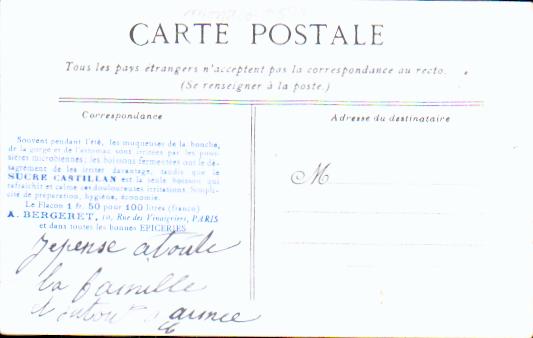 CARTE POSTALE
Tous les pays étrangers n'acceptent pas la correspondance au recto.
(Se renseigner à la poste.)
Correspondance
Souvent pendant l'été, les muqueuses de la bouche,
de la gorge et de l'estomac sont irritées par les pous-
sières microbiennes; les boissons fermentées ont le dé-
sagrément de les irriter davantage, tandis que le
SUCRE CASTILLAN est la seule boisson qui
rafraîchit et calme ces douloureuses irritations. Simpli-
cité de préparation, hygiène, économie.
Le Flacon 1 fr. 50 pour 100 litres (franco)
A. BERGERET, 10, Rue des Vinaigriers, PARIS
et dans toutes les bonnes EPICERIES
Je pense a toute
la famille
Adresse du destinataire
M